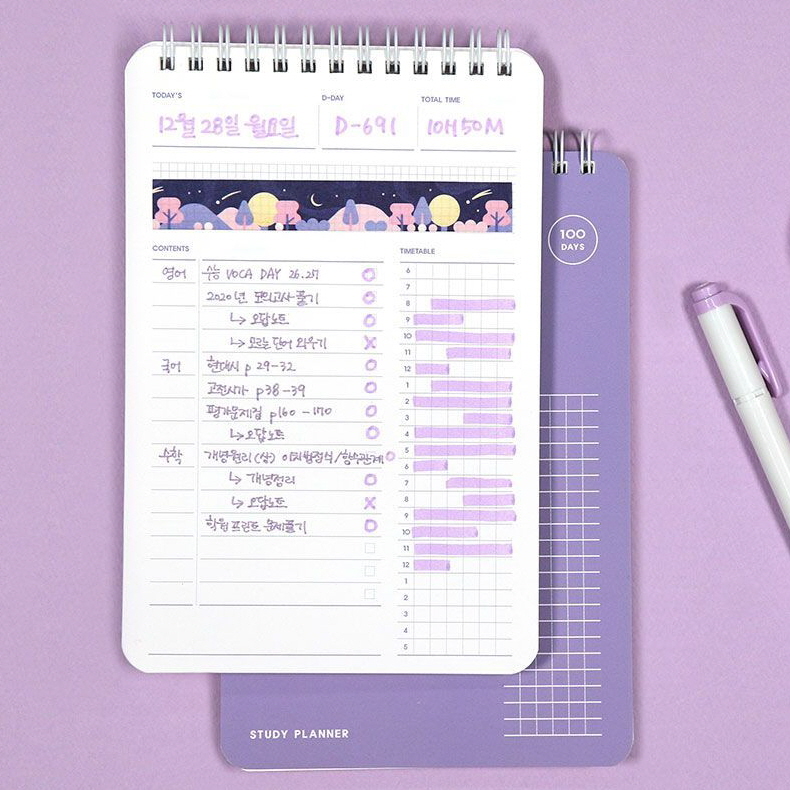 TODAY'S D-DAY TOTAL TIME
12월 28일 월요일 D-691 10H 50M
100
DAYS
CONTENTS TIMETABLE
영어 수능 VOCA DAY 26.27
2020년 모의고사 풀기
↳ 오답노트
↳ 모르는 단어 외우기 X
국어 현대시 p 29-32
고전시가 p38-39
평가문제집 p160 - 170
↳ 오답노트
수학 개념원리 (상) 이차방정식/함수관계
↳ 개념정리
↳ 오답노트 X
학원 프린트 문제풀기
6
7
8
9
10
11
12
1
2
3
4
5
6
7
8
9
10
11
12
1
2
3
4
5
STUDY PLANNER